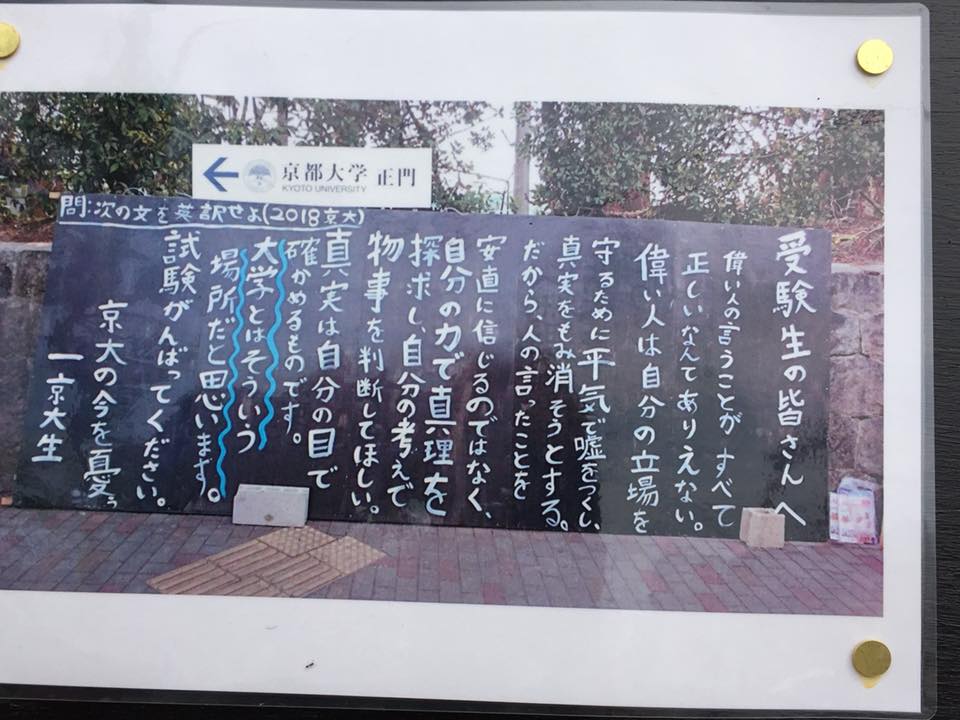 京都大学 正門
KYOTO UNIVERSITY
問:次の文を英訳せよ(2018京大)
受験生の皆さんへ
偉い人の言うことが すべて
正しいなんてありえない。
偉い人は自分の立場を
守るために平気で嘘をつくし、
真実をもみ消そうとする。
だから、人の言ったことを
安直に信じるのではなく、
自分の力で真理を
探求し、自分の考えで
物事を判断してほしい。
真実は自分の目で
確かめるものです。
大学とはそういう
場所だと思います。
試験がんばってください。
京大の今を憂う
一京大生